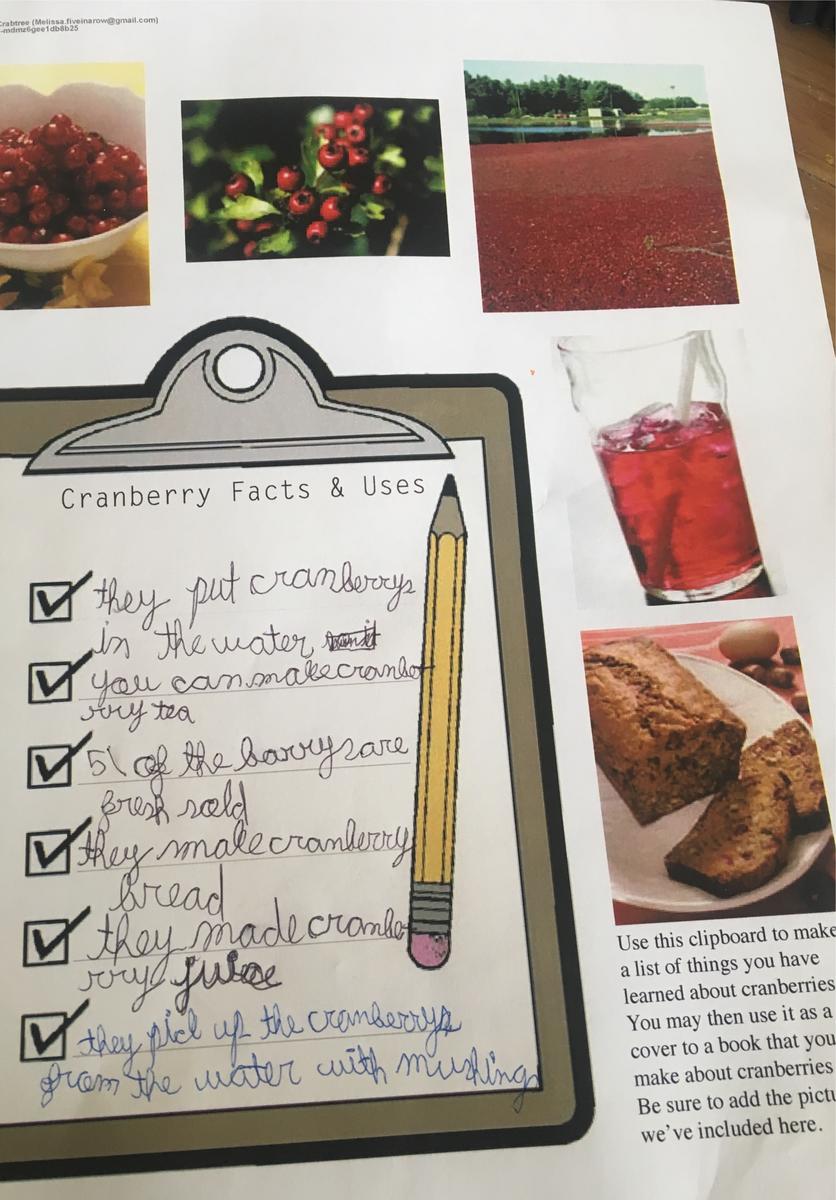 Crabtree (Melissa.fiveinarow@gmail.com)
-mdmz6gee1db8b25
Cranberry Facts & Uses
they put cranberrys
in the water
you can make cranbe
rry tea
5% of the barrys are
fresh sold
they make cranberry
bread
they made cranbe
rry juice
they pick up the cranberrys
from the water with mushings
Use this clipboard to make
a list of things you have
learned about cranberries
You may then use it as a
cover to a book that you
make about cranberries
Be sure to add the pictu
we've included here.